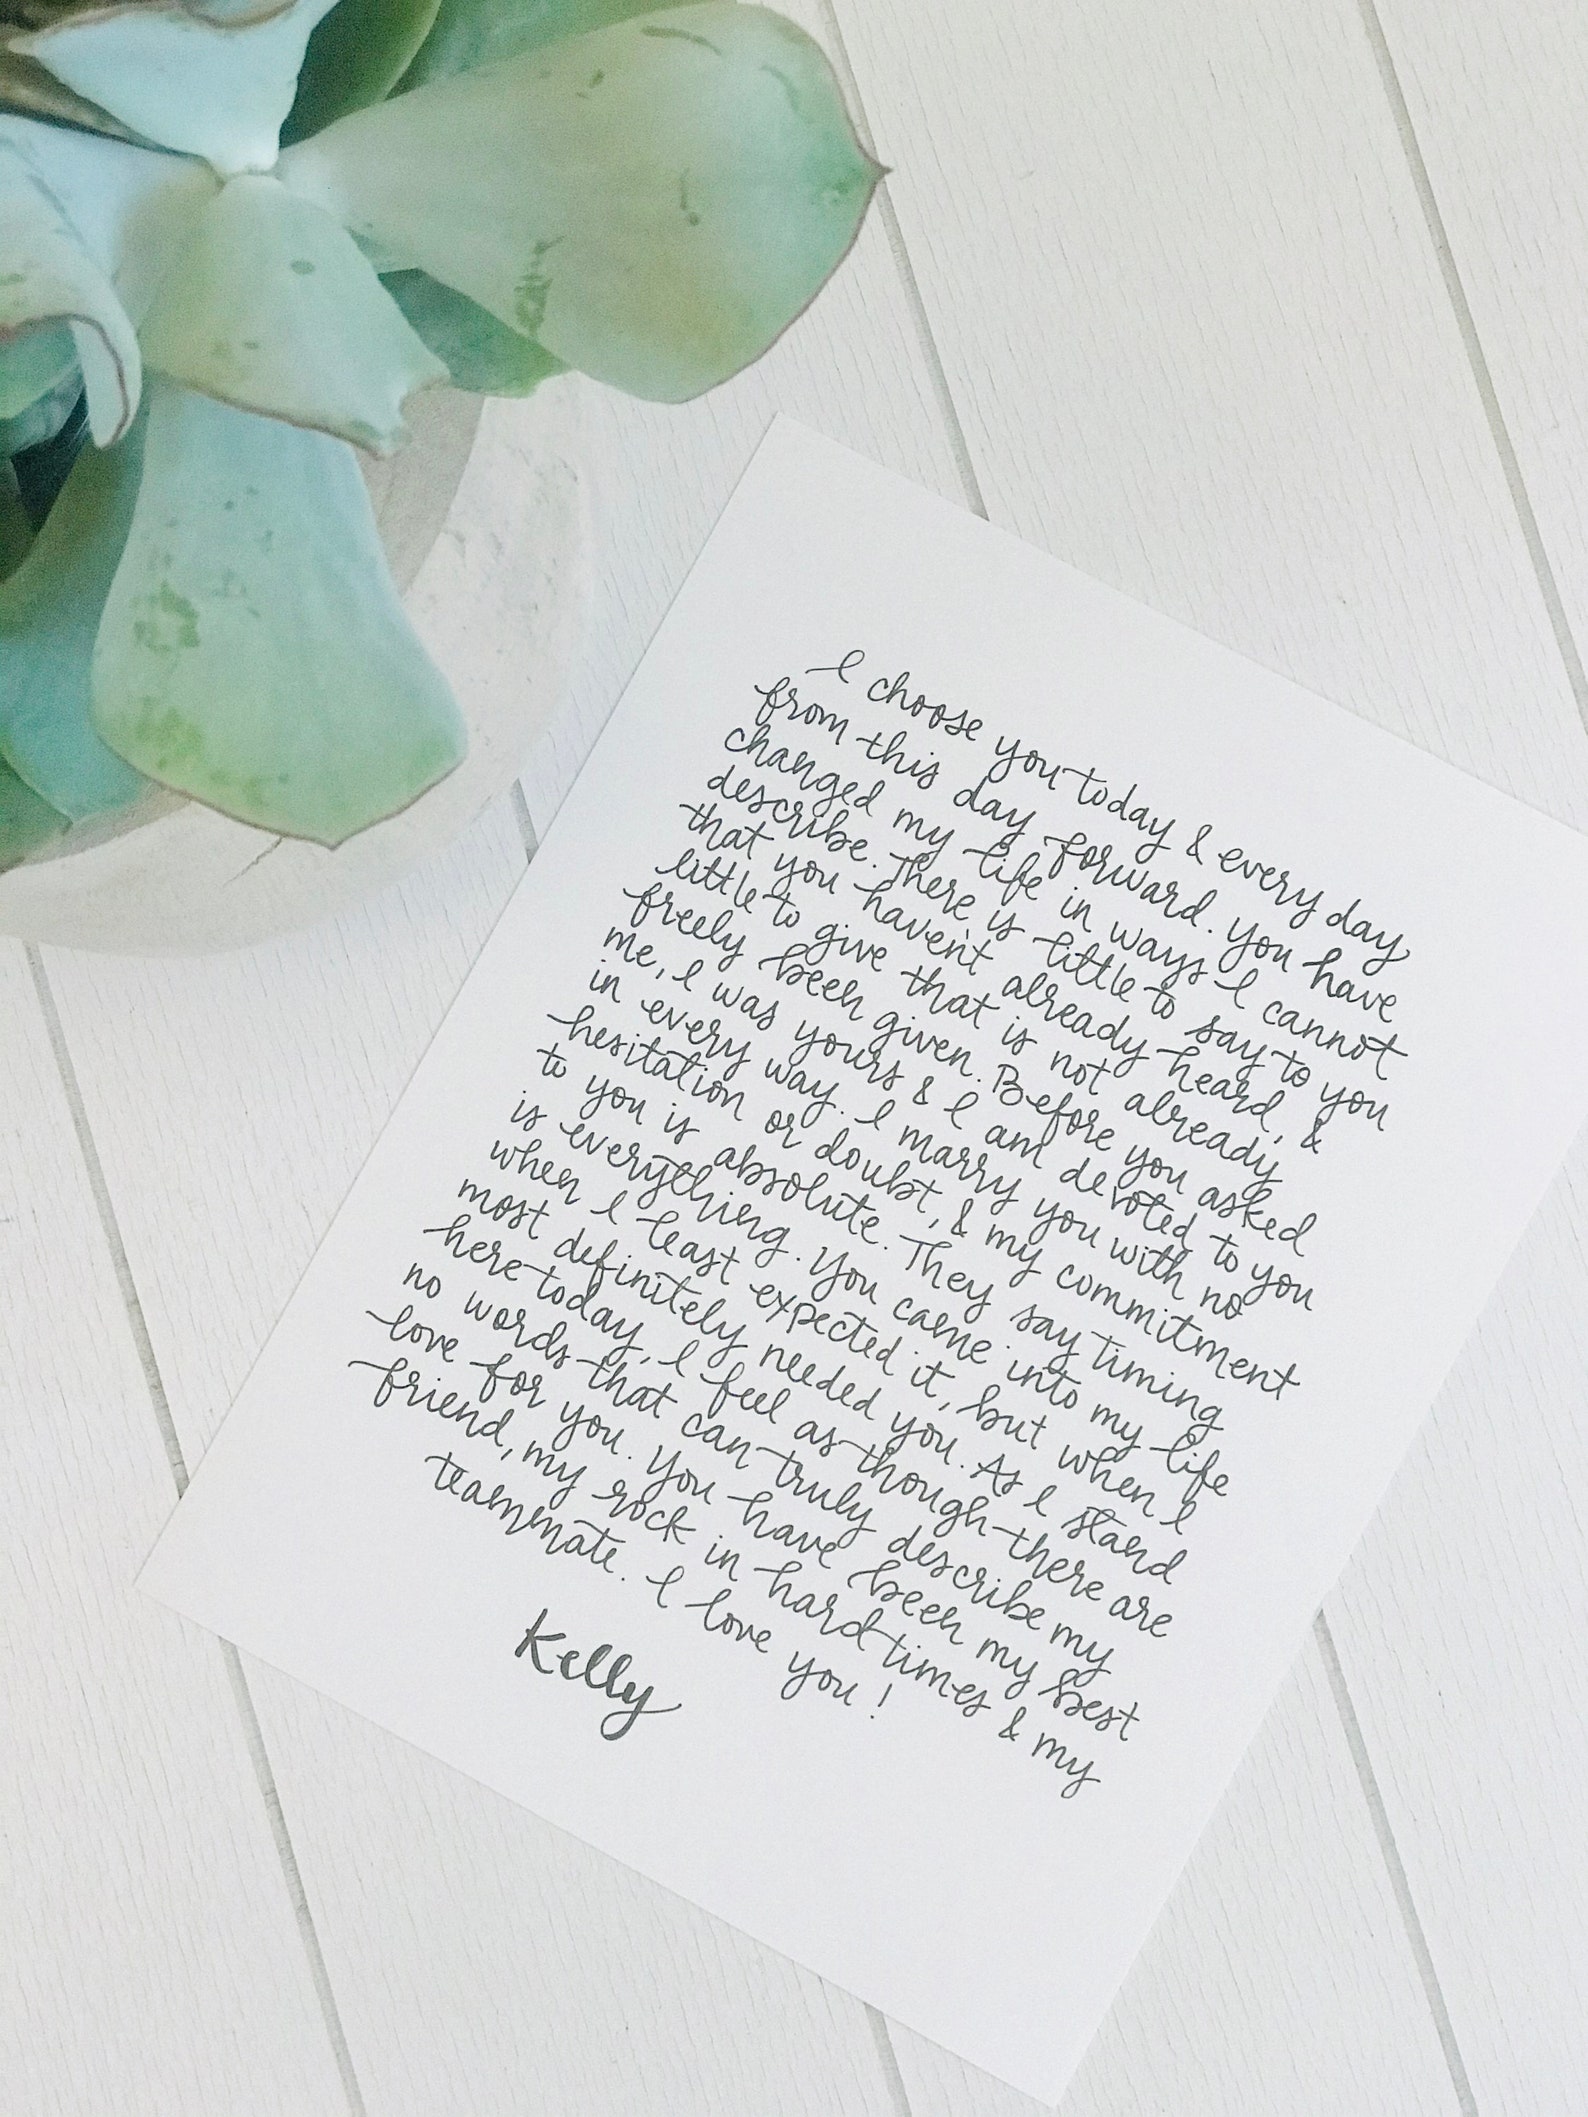 I choose you today & every day
from this day forward. You have
changed my life in ways I cannot
describe. There is little to say to you
that you haven't already heard, &
little to give that is not already
freely been given. Before you asked
me, I was yours & I am devoted to you
in every way. I marry you with no
hesitation or doubt, & my commitment
to you is absolute. They say timing
is everything. You came into my life
when I least expected it, but when I
most definitely needed you. As I stand
here today, I feel as though there are
no words that can truly describe my
love for you. You have been my best
friend, my rock in hard times & my
teammate. I love you!
Kelly